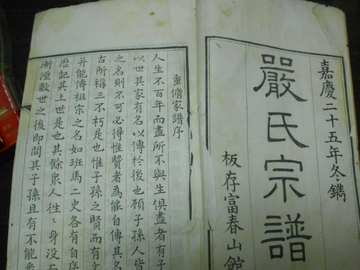 嘉慶二十五年冬鐫
嚴氏宗譜
板存富春山館
重脩家譜序
人生不百年而盡所不與生俱盡者有子
以世其家有名以傳於後也顧子孫人皆
之名則不可必得惟賢者為能自傳其名
古所稱三不朽是也惟子孫之賢而有
并能傳祖宗之名如班馬二史各有自序
歷記其上世是也其餘衆人姓身沒
漸湮數世之後叩問其子孫且有不能